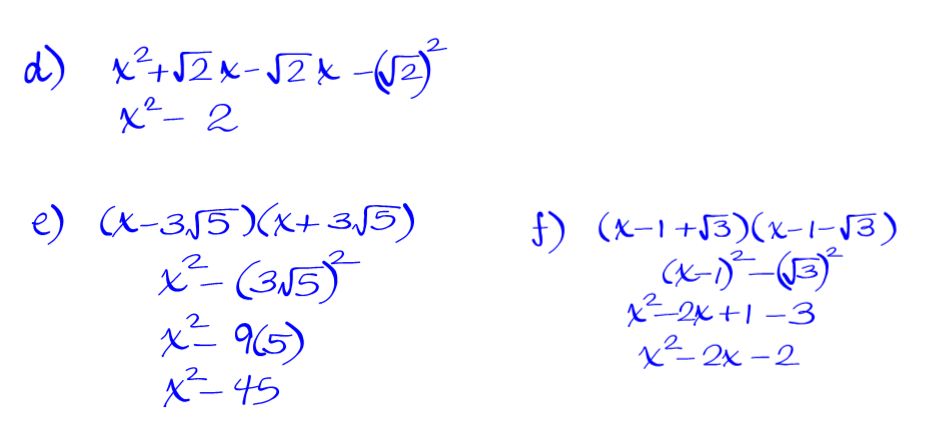 d) x²+√2x-√2x-(√2)²
x²-2
e) (x-3√5)(x+3√5)
x²-(3√5)²
x²-9(5)
x²-45
f) (x-1+√3)(x-1-√3)
(x-1)²-(√3)²
x²-2x+1-3
x²-2x-2